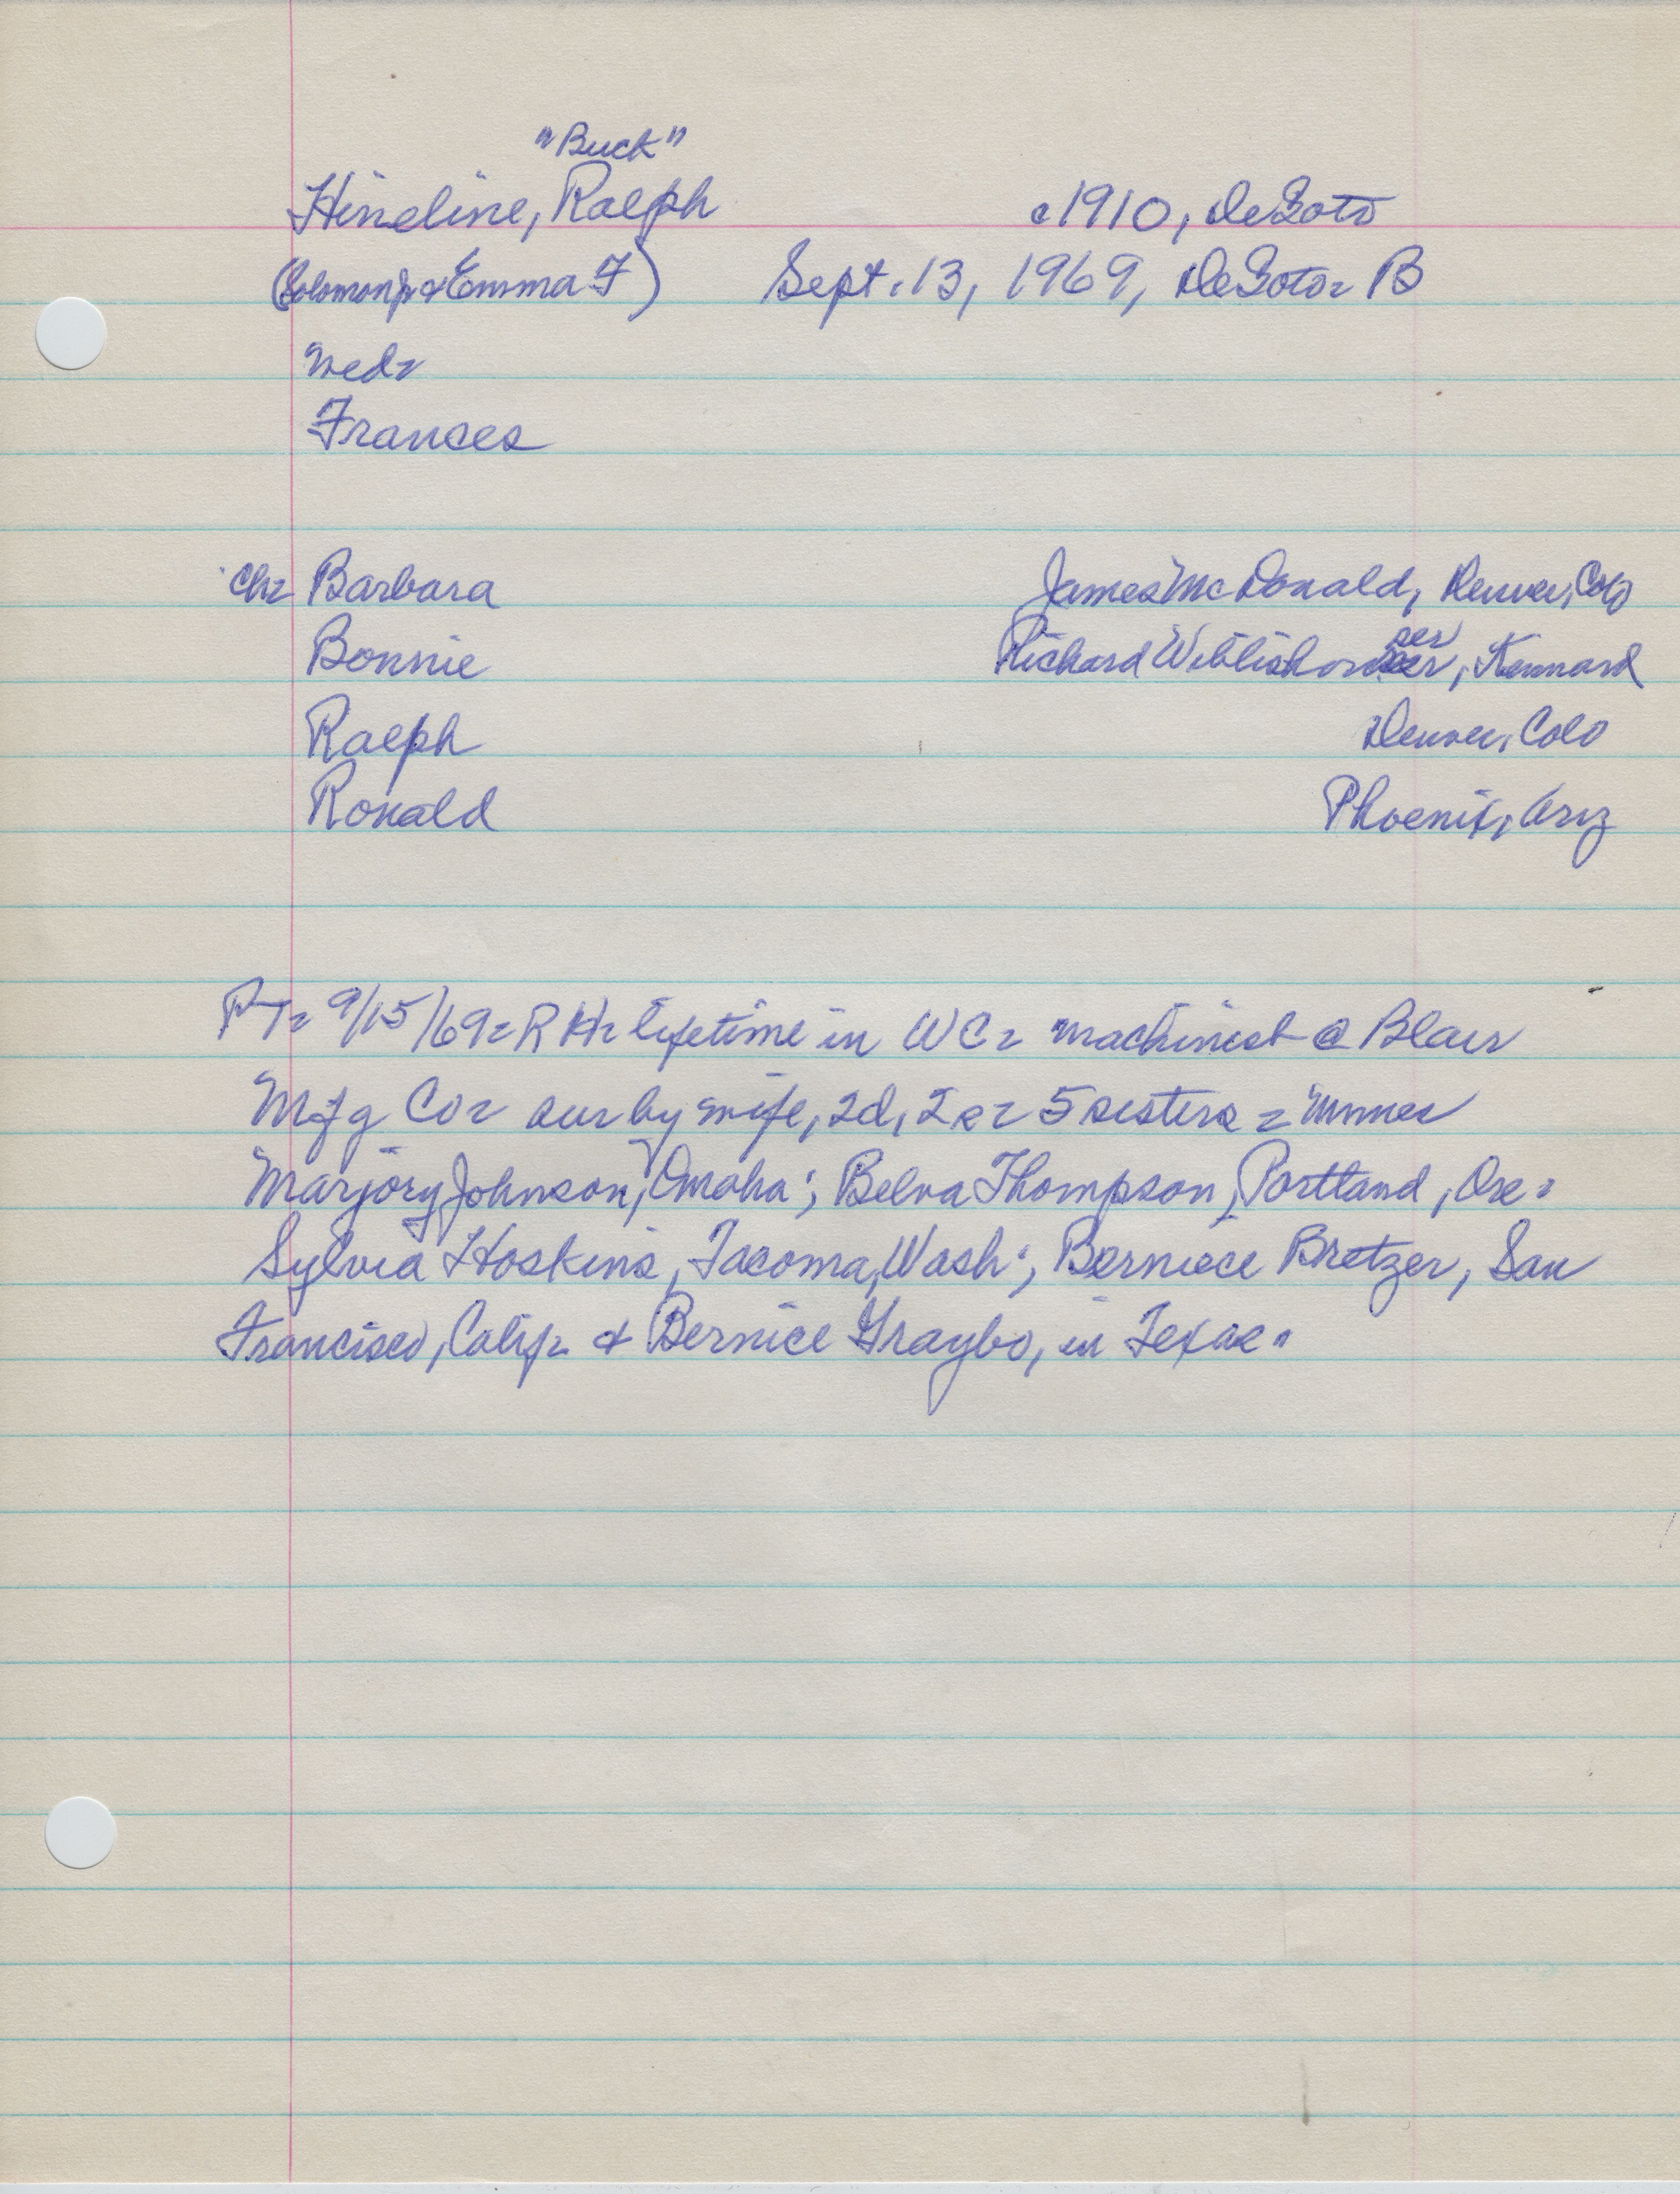 "Buck"
Hineline, Ralph c1910, DeSoto
(Solomon Jr & Emma F) Sept. 13, 1969, DeSoto= B
med=
Frances
Ch= Barbara James McDonald, Denver, Colo
Bonnie Richard, Kennard
Ralph Denver, Colo
Ronald Phoenix, Ariz
PT= 9/15/69= RH= lifetime in WC= machinist @ Blair
Mfg Co= sur by wife, 2d, 2s= 5 sisters = Mmes
Marjory Johnson, Omaha; Belva Thompson, Portland, Ore=
Sylvia Hoskins, Tacoma, Wash; Berniece Bretzer, San
Francisco, Calif= & Bernice Graybo, in Texas=